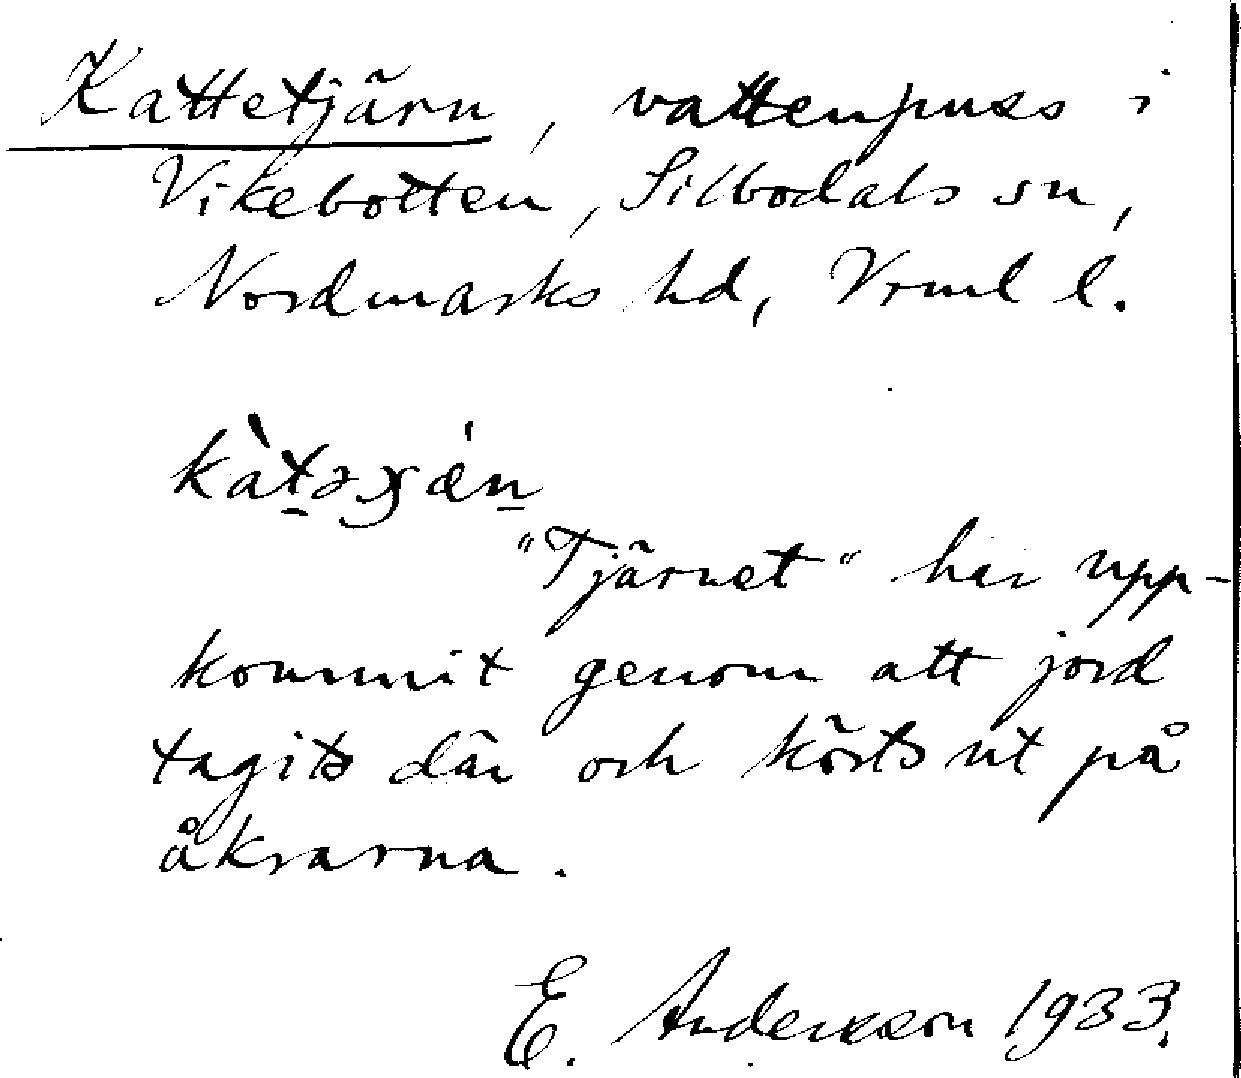 Kattetjärn, vattenpuss i
Vikebotten, Silbodals sn,
Nordmarks hd, Vrml l.
"Tjärnet" har upp-
kommit genom att jord
tagits där och körts ut på
åkrarna.
E. Andersson 1933.